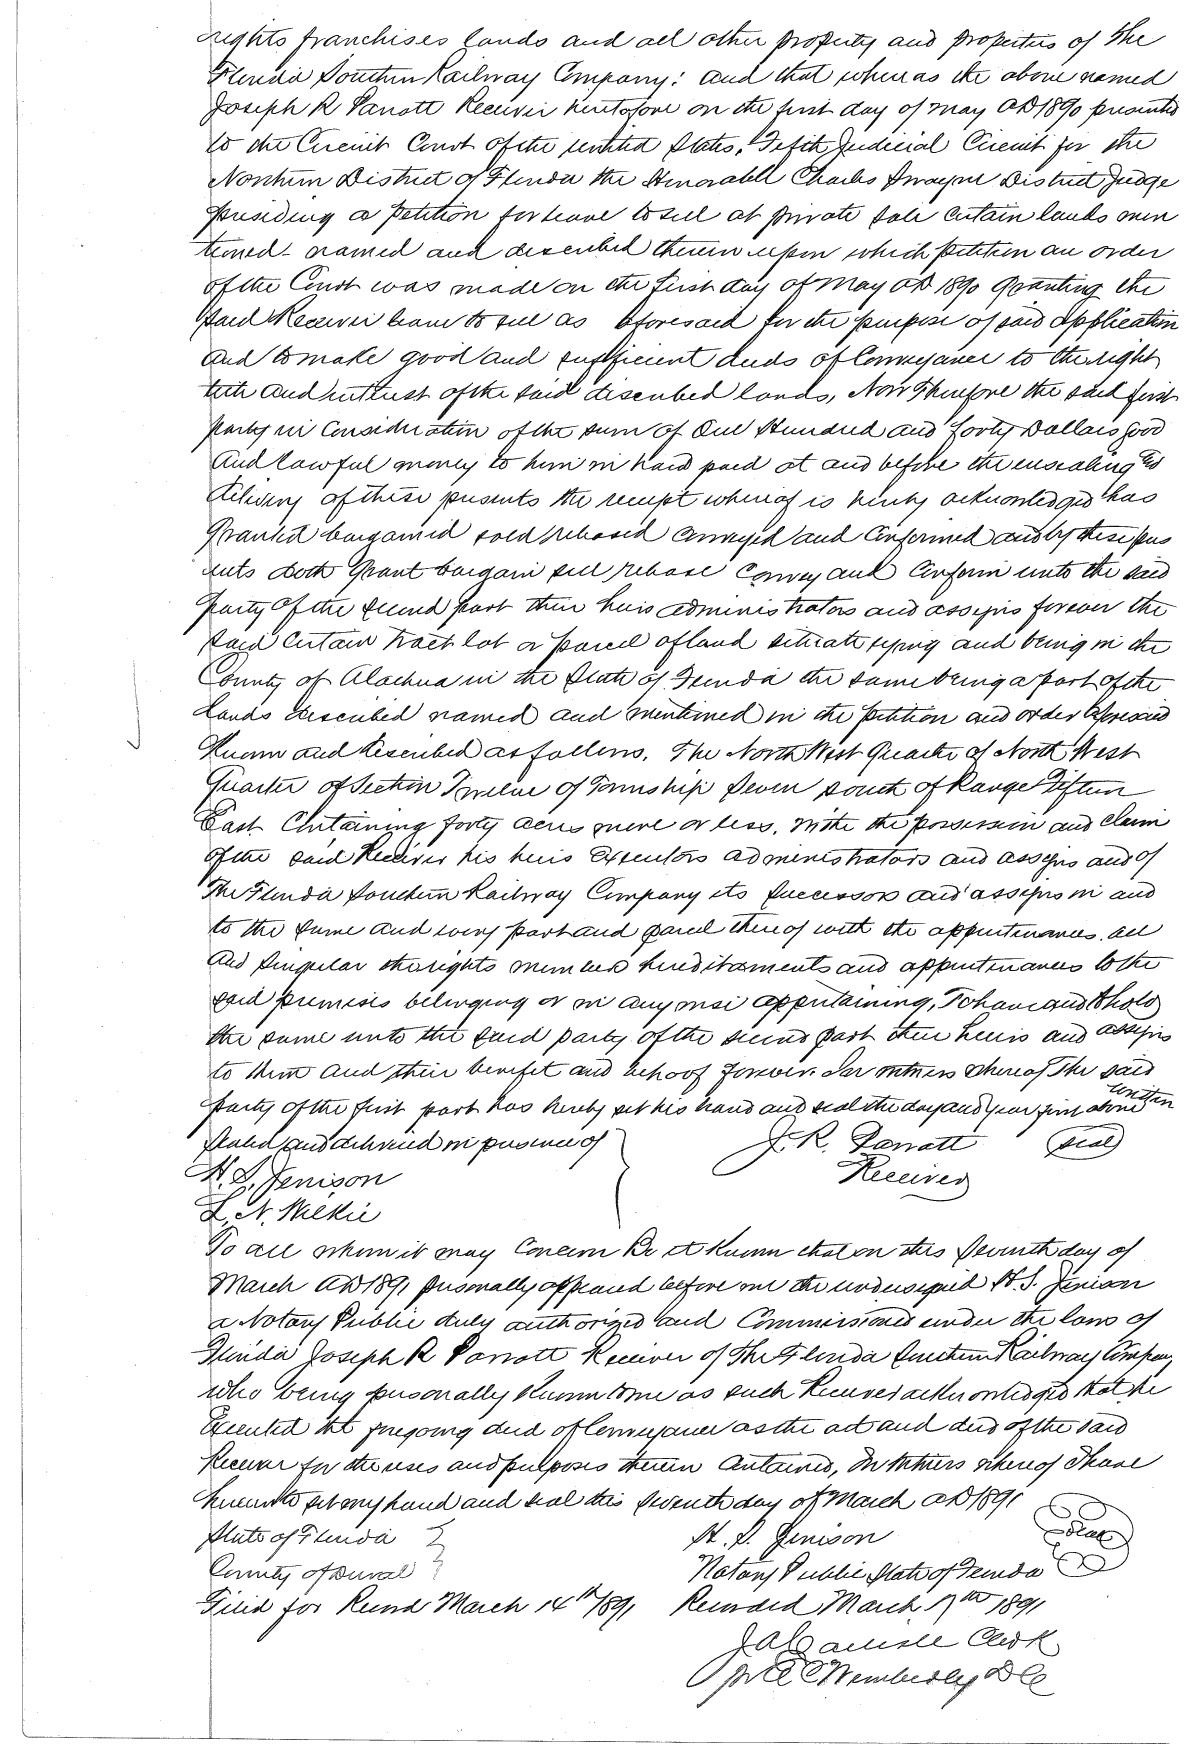 rights franchises lands and all other property and properties of The
Florida Southern Railway Company: and that whereas the above named
Joseph R Parrott Receiver heretofore on the first day of May AD 1890 presented
to the Circuit Court of the United States, Fifth Judicial Circuit for the
Northern District of Florida the Honorable Charles Swayne District Judge
presiding a petition for leave to sell at private sale certain lands men
tioned named and described therein upon which petition an order
of the Court was made on the first day of May AD 1890 granting the
said Receiver leave to sell as aforesaid for the purpose of said application
and to make good and sufficient deeds of Conveyance to the right
title and interest of the said described lands, Now Therefore the said first
party in consideration of the sum of One Hundred and forty Dollars good
and lawful money to him in hand paid at and before the ensealing and
delivery of these presents the receipt whereof is hereby acknowledged has
Granted bargained sold released conveyed and Confirmed and by these pres
ents doth Grant bargain sell release Convey and Confirm unto the said
party of the second part their heirs administrators and assigns forever the
said certain tract lot or parcel of land situate lying and being in the
County of Alachua in the State of Florida the same being a part of the
lands described named and mentioned in the petition and order aforesaid
Known and described as follows. The North West Quarter of North West
Quarter of Section Twelve of Township Seven south of Range Fifteen
East Containing forty acres more or less. With the possession and claim
of the said Receiver his heirs Executors administrators and assigns and of
The Florida Southern Railway Company its Successors and assigns in and
to the same and every part and parcel thereof with the appurtenances. all
and singular the rights members hereditaments and appurtenances to the
said premises belonging or in any wise appertaining, To have and to hold
the same unto the said party of the second part their heirs and assigns
to them and their benefit and behoof forever. In witness whereof The said
party of the first part has hereby set his hand and seal the day and year first above written
Sealed and delivered in presence of J. R. Parrott (seal)
H. S. Jenison Receiver
L. N. Wilkie
To all whom it may Concern Be it Known that on this Seventh day of
March AD 1891 personally appeared before me the undersigned H. S. Jenison
a Notary Public duly authorized and Commissioned under the laws of
Florida Joseph R Parrott Receiver of The Florida Southern Railway Company
who being personally Known to me as such Receiver acknowledged that he
Executed the foregoing deed of Conveyance as the act and deed of the said
Receiver for the uses and purposes therein contained, In Witness whereof I have
hereunto set my hand and seal this Seventh day of March AD 1891
State of Florida H. S. Jenison Seal
County of Duval Notary Public State of Florida
Filed for Record March 14th 1891 Recorded March 17th 1891
J A Carlisle Clerk
pr Wemberley D C